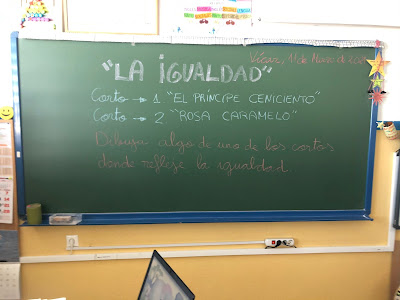 "LA IGUALDAD"
Corto → 1 "EL PRÍNCIPE CENICIENTO"
Corto → 2 "ROSA CARAMELO"
Dibuja algo de uno de los cortos
donde refleje la igualdad.